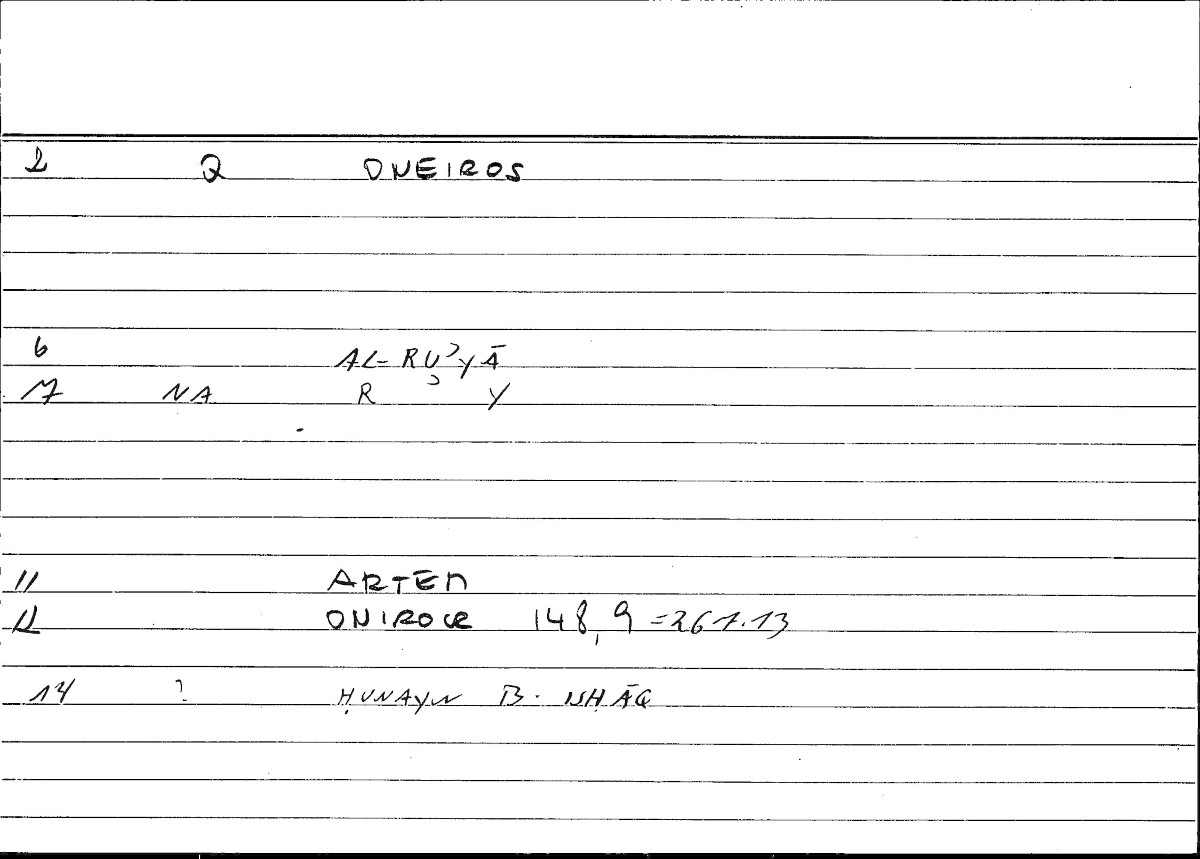 2 Q ONEIROS
6 AL-RUʾYĀ
7 NA R ʾ Y
11 ARTEM
12 ONIROCR 148,9 = 261.13
14 ? ḤUNAYN B. ISḤĀQ